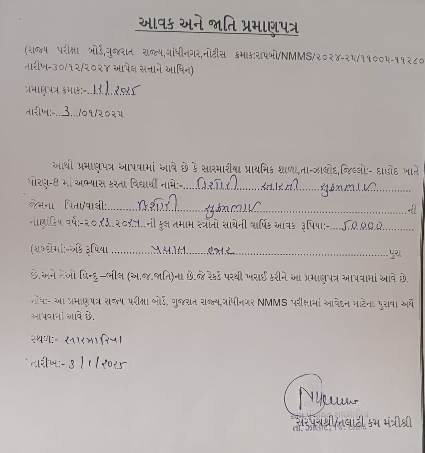 આવક અને જાતિ પ્રમાણપત્ર
(રાજ્ય પરીક્ષા બોર્ડ,ગુજરાત રાજ્ય,ગાંધીનગર,નોટીસ ક્રમાંક:રાપબો/NMMS/૨૦૨૪-૨૫/૧૧૦૦૫-૧૧૨૮૦
તારીખ-૩૦/૧૨/૨૦૨૪ આપેલ સત્તાને આધિન)
પ્રમાણપત્ર ક્રમાંક:- ૧૧/૨૦૨૫
તારીખ:- 3 /૦૧/૨૦૨૫
આથી પ્રમાણપત્ર આપવામાં આવે છે કે સારમારીયા પ્રાથમિક શાળા,તા-ઝાલોદ,જિલ્લો:- દાહોદ ખાતે
ધોરણ-૮ માં અભ્યાસ કરતા વિદ્યાર્થી નામે:- કિશોરી
જેમના પિતા/વાલી: ની
નાણાંકિય વર્ષ:-૨૦૨૩.૨૦૨૪.ની કુલ તમામ સ્ત્રોતો સાથેની વાર્ષિક આવક રૂપિયા:- ૫૦૦૦૦
(શબ્દોમાં:-અંકે રૂપિયા પચાસ હજાર પુરા
છે.અને તેઓ હિન્દુ -ભીલ (અ.જ.જાતિ)ના છે.જે રેકર્ડ પરથી ખરાઈ કરીને આ પ્રમાણપત્ર આપવામાં આવે છે.
નોંધ:- આ પ્રમાણપત્ર રાજ્ય પરીક્ષા બોર્ડ, ગુજરાત રાજ્ય,ગાંધીનગર NMMS પરીક્ષામાં આવેદન માટેના પુરાવા અર્થે
આપવામાં આવે છે.
સ્થળ:- સારમારિયા
તારીખ:- ૩/૧/૨૦૨૫
સરપંચશ્રી/તલાટી કમ મંત્રીશ્રી